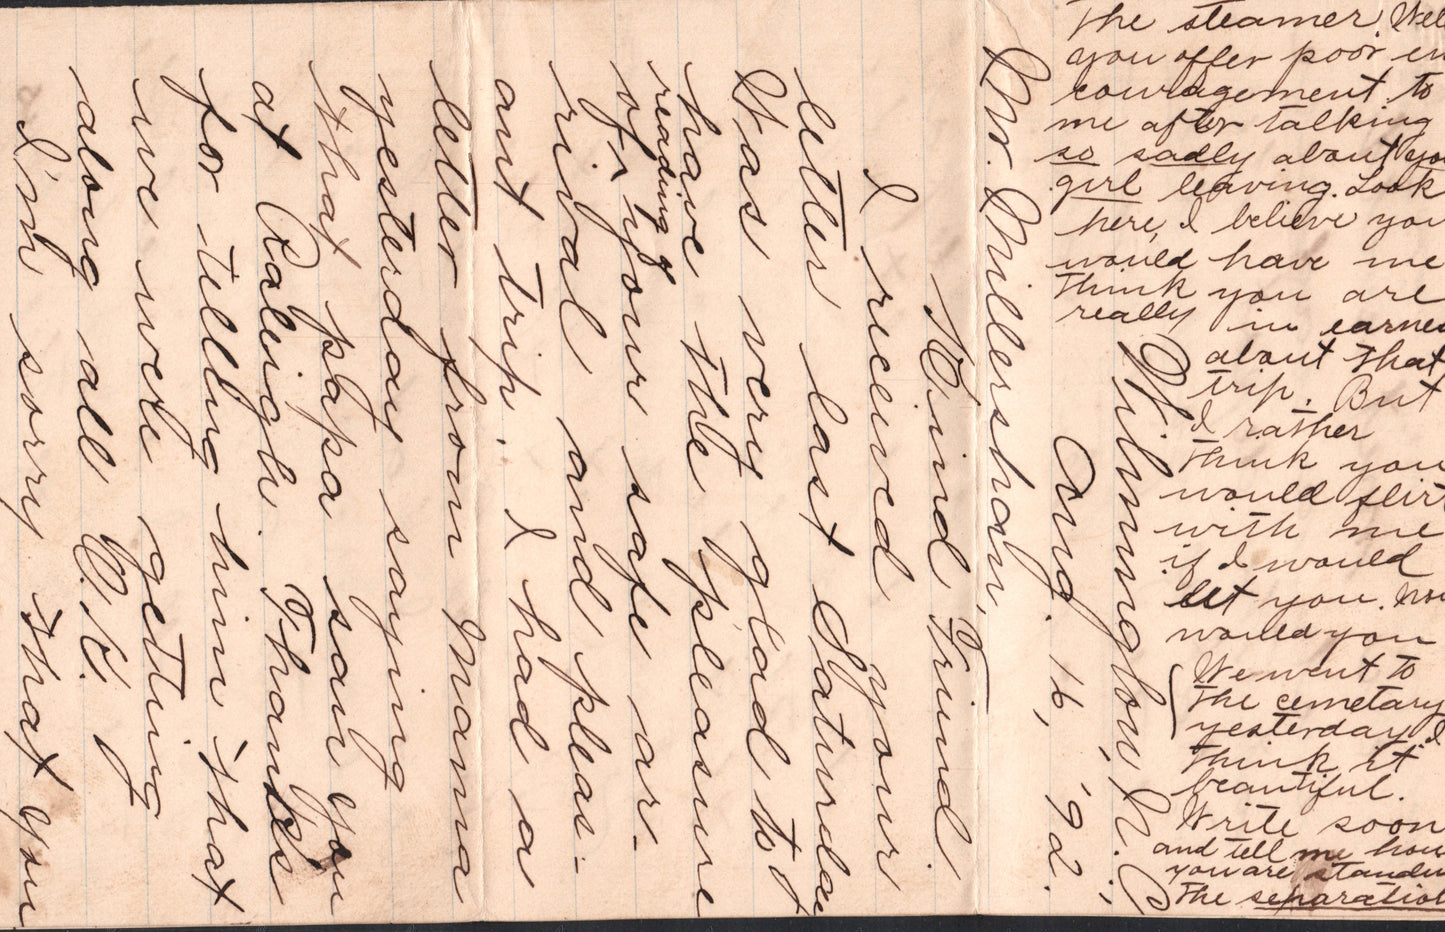 Wilmington, N.C.,
Aug. 16, '92.
Mr. Millersham,
Kind Friend.
I received your
letter last Saturday
Was very glad to
have the pleasure
of reading your safe ar-
rival and pleas-
ant trip. I had a
letter from Mama
yesterday saying
that papa saw you
at Raleigh. Thanks
for telling him that
we were getting
along all O.K.
I'm sorry that you
the steamer. Well
you offer poor en
couragement to
me after talking
so sadly about you
girl leaving. Look
here, I believe you
would have me
think you are
really in earnes
about that
trip. But
I rather
think you
would flirt
with me
if I would
let you. Now
would you
We went to
the cemetary
yesterday. I
think it
beautiful.
Write soon
and tell me how
you are standin
the separation